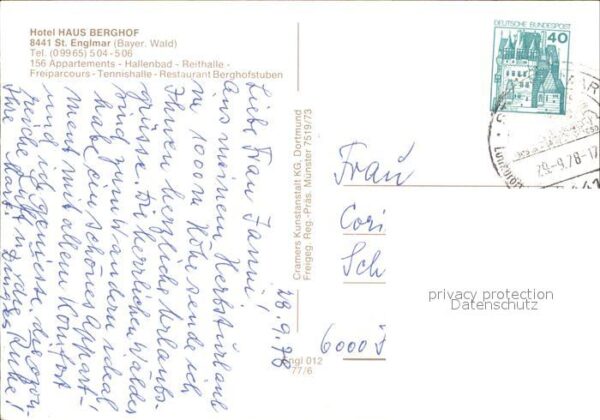 Hotel HAUS BERGHOF
8441 St. Englmar (Bayer. Wald)
Tel. (09965) 504-506
156 Appartements - Hallenbad - Reithalle -
Freiparcours - Tennishalle - Restaurant Berghofstuben
28.9.78
Liebe Frau Janni!
aus meinem Herbsturlaub
in 1000 m Höhe sende ich
Ihnen herzliche Urlaubs-
grüsse. Die herrlichen Wälder
sind zum wandern ideal
habe ein schönes Appart-
ment mit allem Komfort
und ich geniesse die ozon-
reiche Luft und die Ruhe!
Ihre
Cramers Kunstanstalt KG, Dortmund
Freigeg. Reg.-Präs. Münster 7519/73
ngl 012
77/6
DEUTSCHE BUNDESPOST
40
29.-9.78-17
Frau
Cori
Sch
6000
privacy protection
Datenschutz